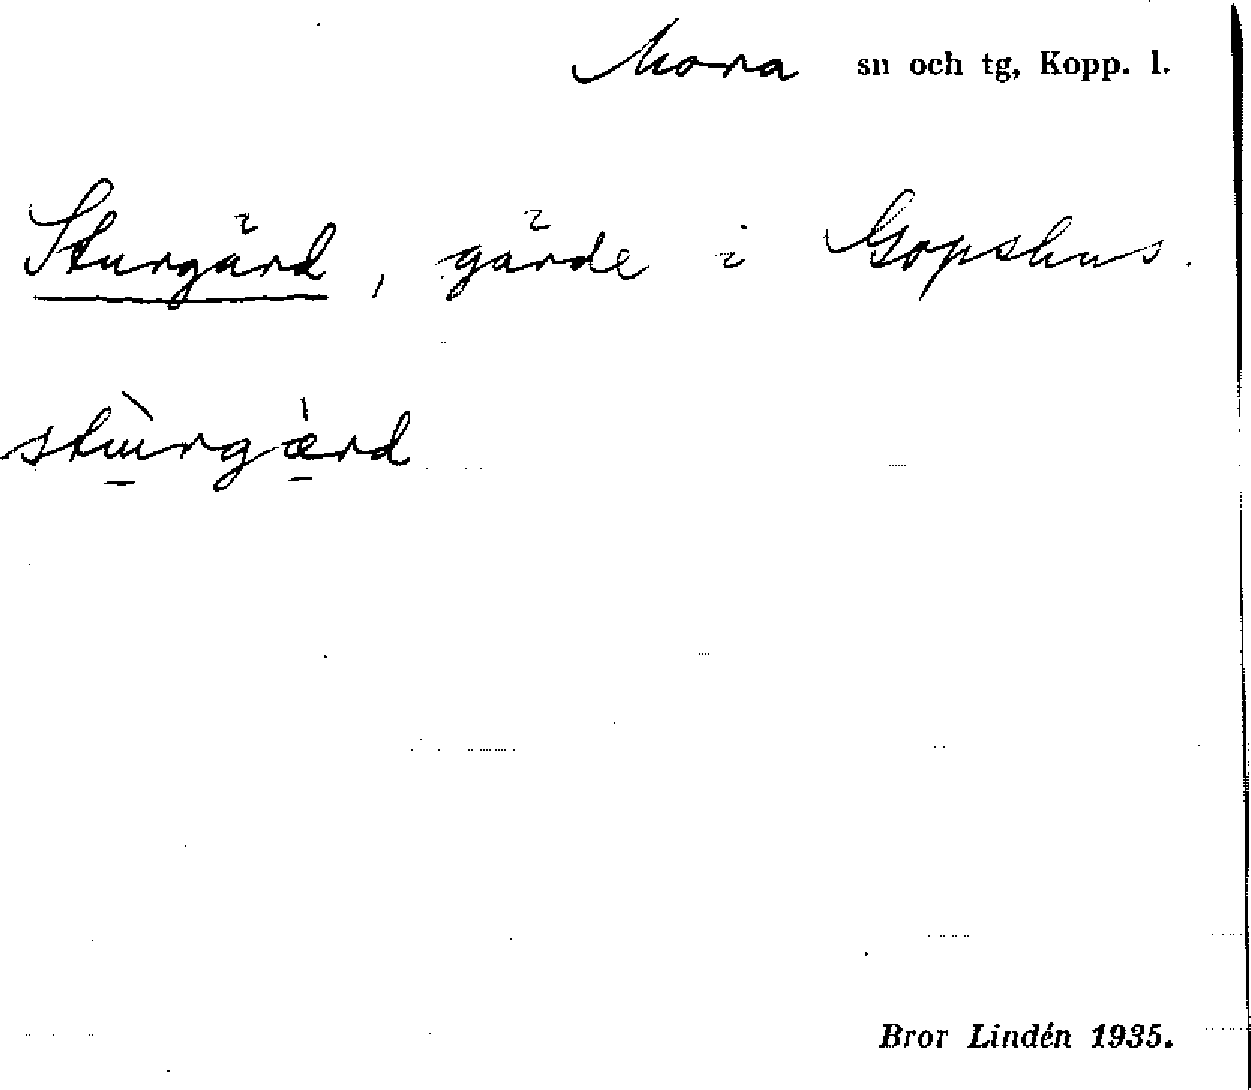 Mora sn och tg, Kopp. l.
Sturgärd, gärde i Gopshus.
stùrgæ̀rd
Bror Lindén 1935.